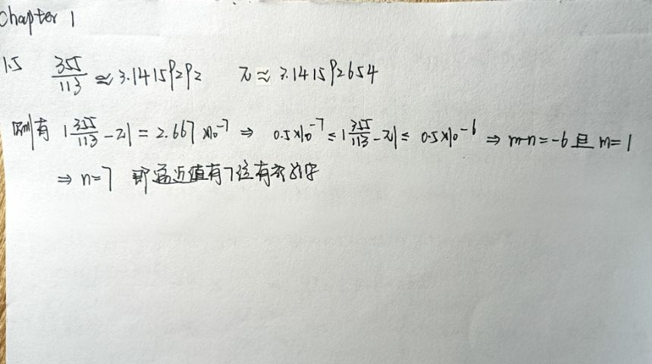 Chapter 1
1.5 355/113 ≈ 3.14159292 π ≈ 3.141592654
则有 |355/113 - π| = 2.667×10^-7 ⇒ 0.5×10^-7 ≤ |355/113 - π| ≤ 0.5×10^-6 ⇒ m-n=-6 且 m=1
⇒ n=7 即该近似值有7位有效数字